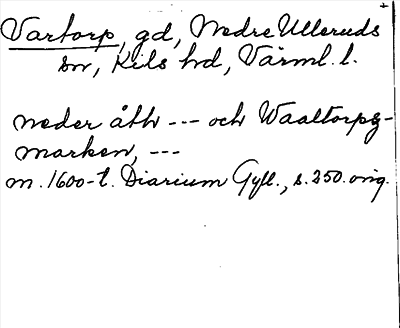 Vartorp, gd, Nedre Ulleruds
sn, Kils hd, Värml. l.
neder åth --- och Waaltorpz-
marken, ---
m. 1600-t. Diarium Gyll., s. 250. orig.